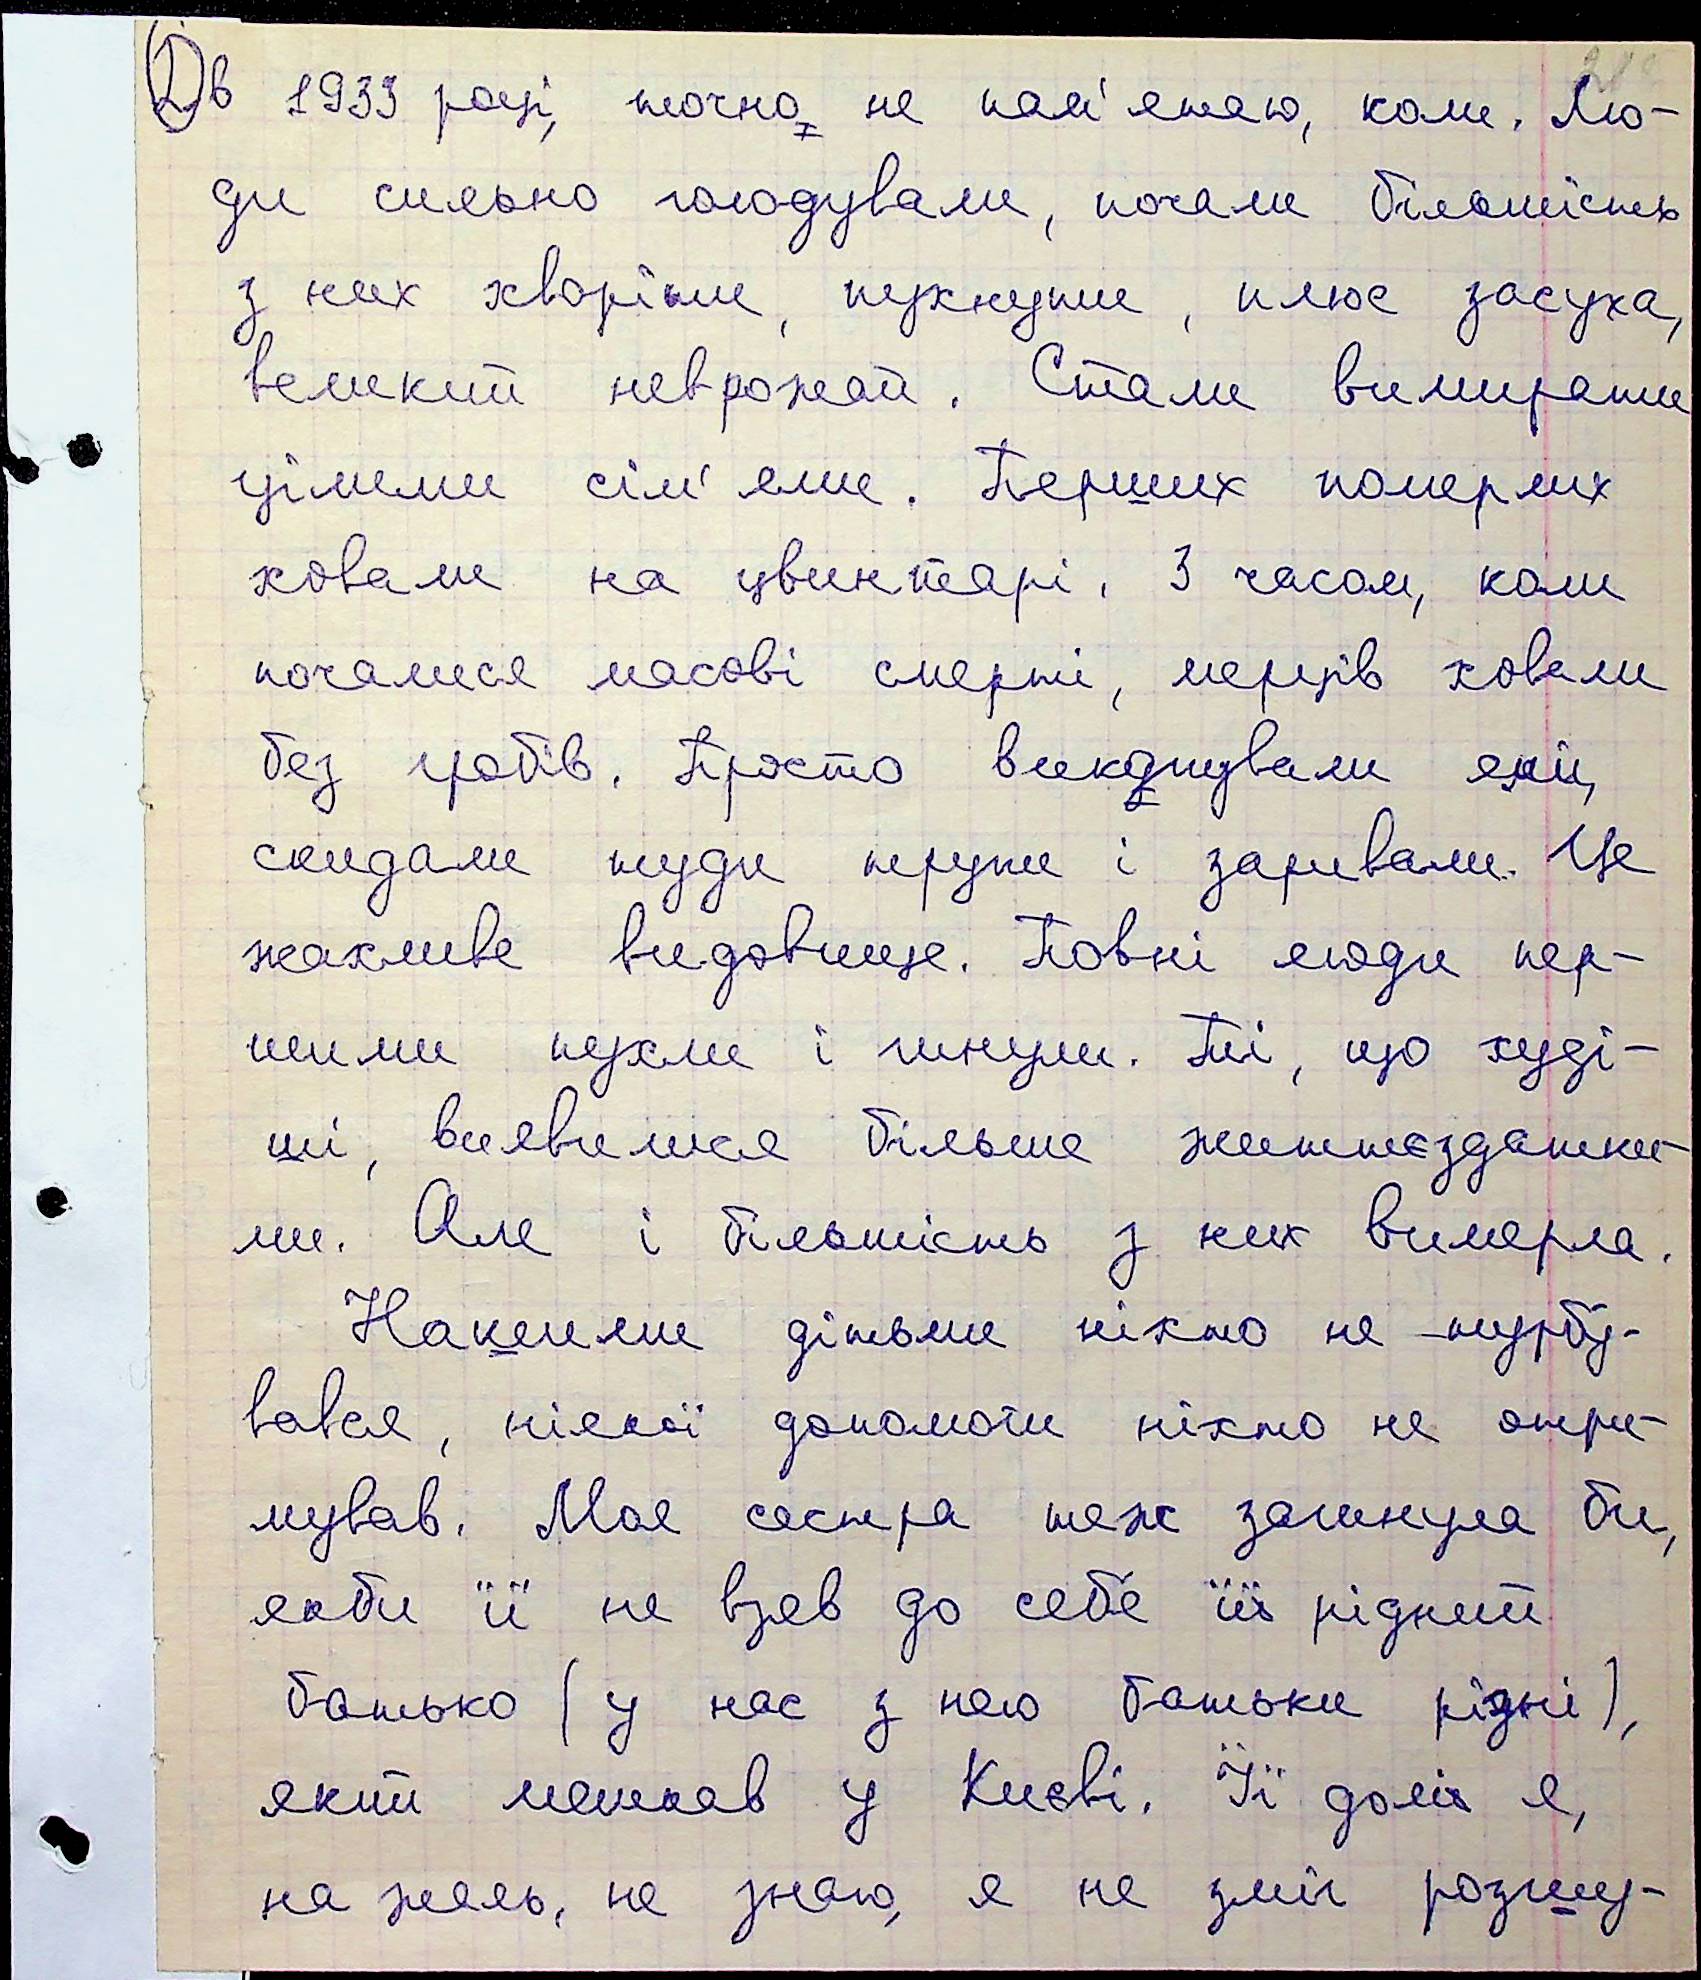 ② в 1933 році, точно не пам'ятаю, коли. Лю-
ди сильно голодували, почали більшість
з них хворіти, пухнути, плюс засуха,
великий неврожай. Стали вимирати
цілими сім'ями. Перших померлих
ховали на цвинтарі. З часом, коли
почалися масові смерті, мерців ховали
без гробів. Просто викопували ями,
скидали туди трупи і заривали. Це
жахливе видовище. Повні люди пер-
шими пухли і гинули. Ті, що худі-
ші, виявилися більше життєздатни-
ми. Але і більшість з них вимерла.
Нашими дітьми ніхто не турбу-
вався, ніякої допомоги ніхто не отри-
мував. Моя сестра теж загинула би,
якби її не взяв до себе її рідний
батько (у нас з нею батьки різні),
який мешкав у Києві. Її долі я,
на жаль, не знаю, я не зміг розшу-